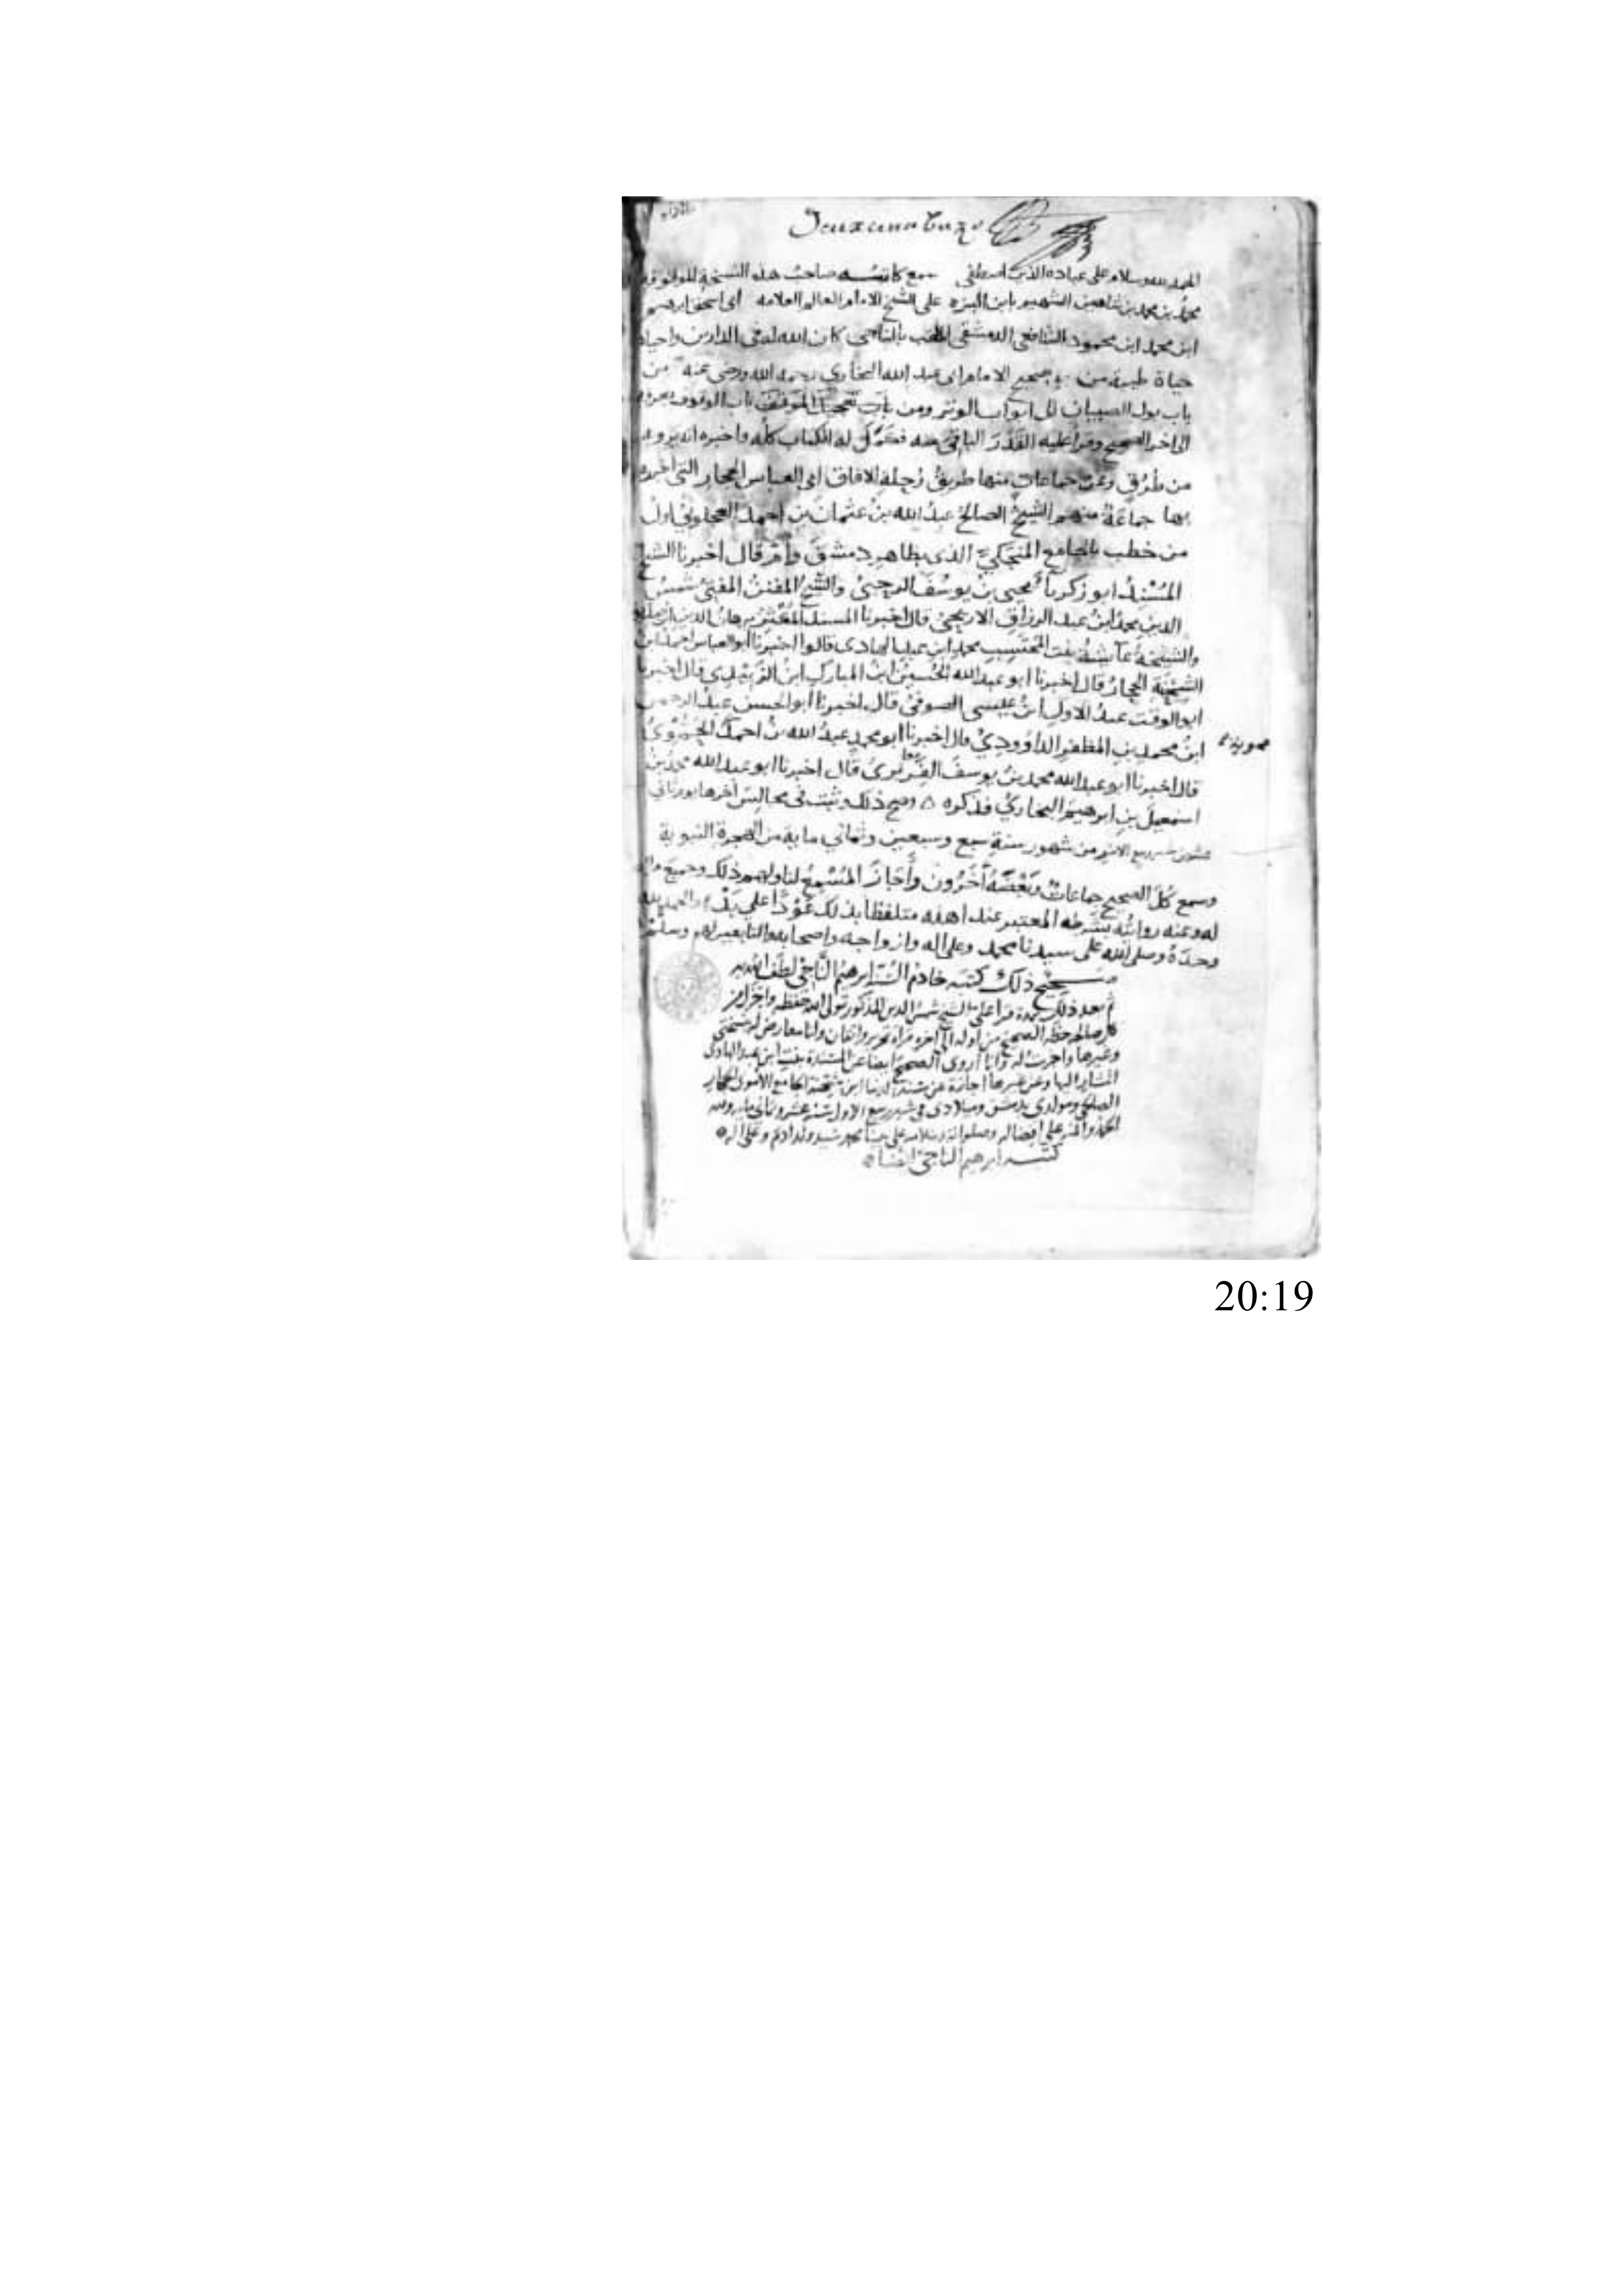 الحمد لله وسلام على عباده الذين اصطفى سمع كاتبه صاحب هذه النسخة
محمد بن محمد بن شاهين الشهير بابن البزه على الشيخ الامام العالم العلامه ابى اسحق ابرهيم
ابن محمد ابن محمود الشافعى الدمشقى الملقب بالناجى كان الله له فى الدارين واحياه
حياة طيبة من صحيح الامام ابى عبد الله البخاري رحمه الله ورضى عنه من
باب بول الصبيان الى ابواب الوتر ومن باب تعجيل الموقف باب الوقوف بعرفة
الى اخر الصحيح وقرأ عليه القدر الباقى منه فكمل له الكتاب كله واخبره انه يرويه
من طرق وعن جماعات منها طريق رحلة الافاق ابى العباس الحجار التى اخبره
بها جماعة منهم الشيخ الصالح عبد الله بن عثمان بن احمد العجلونى اول
من خطب بالجامع المنجكي الذى بظاهر دمشق وأم قال اخبرنا الشيخ
المسند ابو زكريا يحيى بن يوسف الرحبى والشيخ المفنن المفتى شمس
الدين محمد ابن عبد الرزاق الاريحى قال اخبرنا المسند المكثر برهان الدين
والشيخة عائشة بنت المحتسب محمد ابن عبد الهادى قالوا اخبرنا ابو العباس احمد ابن
الشحنة الحجار قال اخبرنا ابو عبد الله الحسين ابن المبارك ابن الزبيدى قال اخبرنا
ابو الوقت عبد الاول ابن عيسى الصوفى قال اخبرنا ابو الحسن عبد الرحمن
ابن محمد بن المظفر الداوودي قال اخبرنا ابو محمد عبد الله بن احمد الحموي
قال اخبرنا ابو عبد الله محمد بن يوسف الفربرى قال اخبرنا ابو عبد الله محمد بن
اسمعيل بن ابرهيم البخارى فذكره وصح ذلك وثبت فى مجالس اخرها يوم ثاني
من شهور سنة سبع وسبعين وثماني ماية من الهجرة النبوية
وسمع كل الصحيح جماعات وبعضه آخرون وأجاز المسمع لنا ولهم ذلك وجميع ما
له وعنه روايته بشرطه المعتبر عند اهله متلفظا بذلك عودا على بدء والحمد لله
وحده وصلى الله على سيدنا محمد وعلى اله وازواجه واصحابه والتابعين لهم وسلم
صحيح ذلك كتبه خادم السنة ابرهيم الناجى لطف الله به
ثم بعد ذلك بمدة قرا على الشيخ شمس الدين المذكور تولى الله حفظه
الصحيح من اوله الى اخره قراءة تحرير واتقان وانا معارض له بنسختى
وغيرها واجزت له وانا اروى الصحيح ايضا عن المسندة بنت ابن عبد الهادى
المشار اليها وعن غيرها اجازة عن مسند الدنيا ابن شحنة الجامع الأموى الحجار
الصالحى ومولدى بدمشق وميلادى فى شهر ربيع الاول سنة عشر وثمانى ماية ولله
الحمد والمنة على افضاله وصلواته وسلامه على نبينا محمد سيد ولد ادم وعلى اله
كتبه ابرهيم الناجى ايضا
20:19